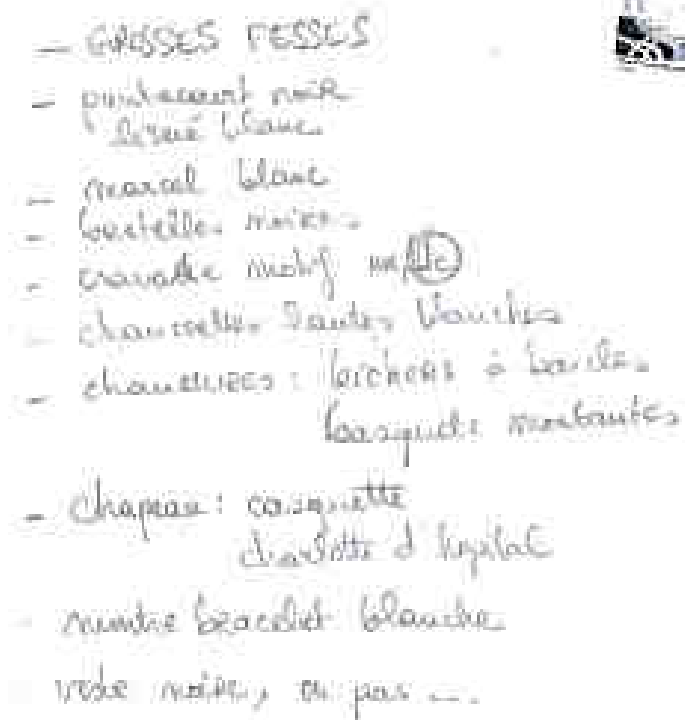 - GROSSES FESSES
- pantacourt noir
blanc
- marcel blanc
- bretelles noires
- cravate motif
- chaussettes hautes blanches
- chaussures : à
basquets montantes
- Chapeau : casquette
charlotte d'hopital
montre bracelet blanche
veste noire, ou pas ...